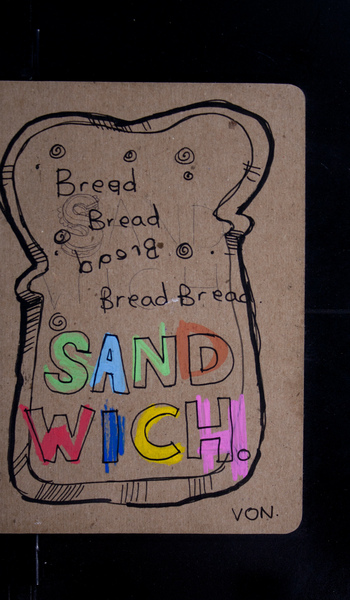 Bread
Bread
Bread
Bread Bread.
SAND
WICH.
VON.